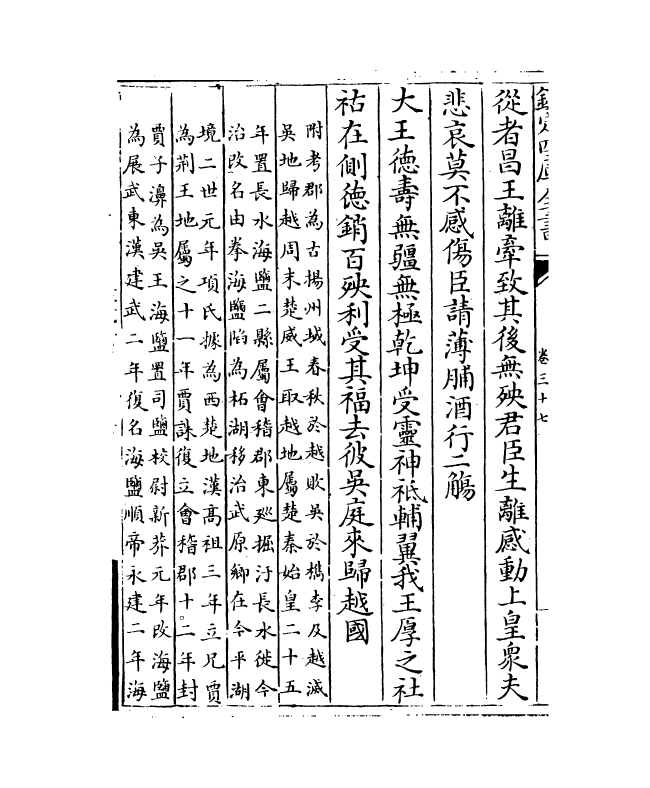 欽定四庫全書
卷三十七
從者昌王離牽致其後無殃君臣生離感動上皇衆夫
悲哀莫不感傷臣請薄脯酒行二觴
大王德壽無疆無極乾坤受靈神祗輔翼我王厚之社
祜在側德銷百殃利受其福去彼吳庭來歸越國
附考郡為古揚州域春秋於越敗吳於檇李及越滅
吳地歸越周末楚威王取越地屬楚秦始皇二十五
年置長水海鹽二縣屬會稽郡東廵掘汙長水徙今
治改名由拳海鹽陷為柘湖移治武原鄉在今平湖
境二世元年項氏據為西楚地漢高祖三年立兄賈
為荆王地屬之十一年賈誅復立會稽郡十二年封
賈子濞為吳王海鹽置司鹽校尉新莽元年改海鹽
為展武東漢建武二年復名海鹽順帝永建二年海